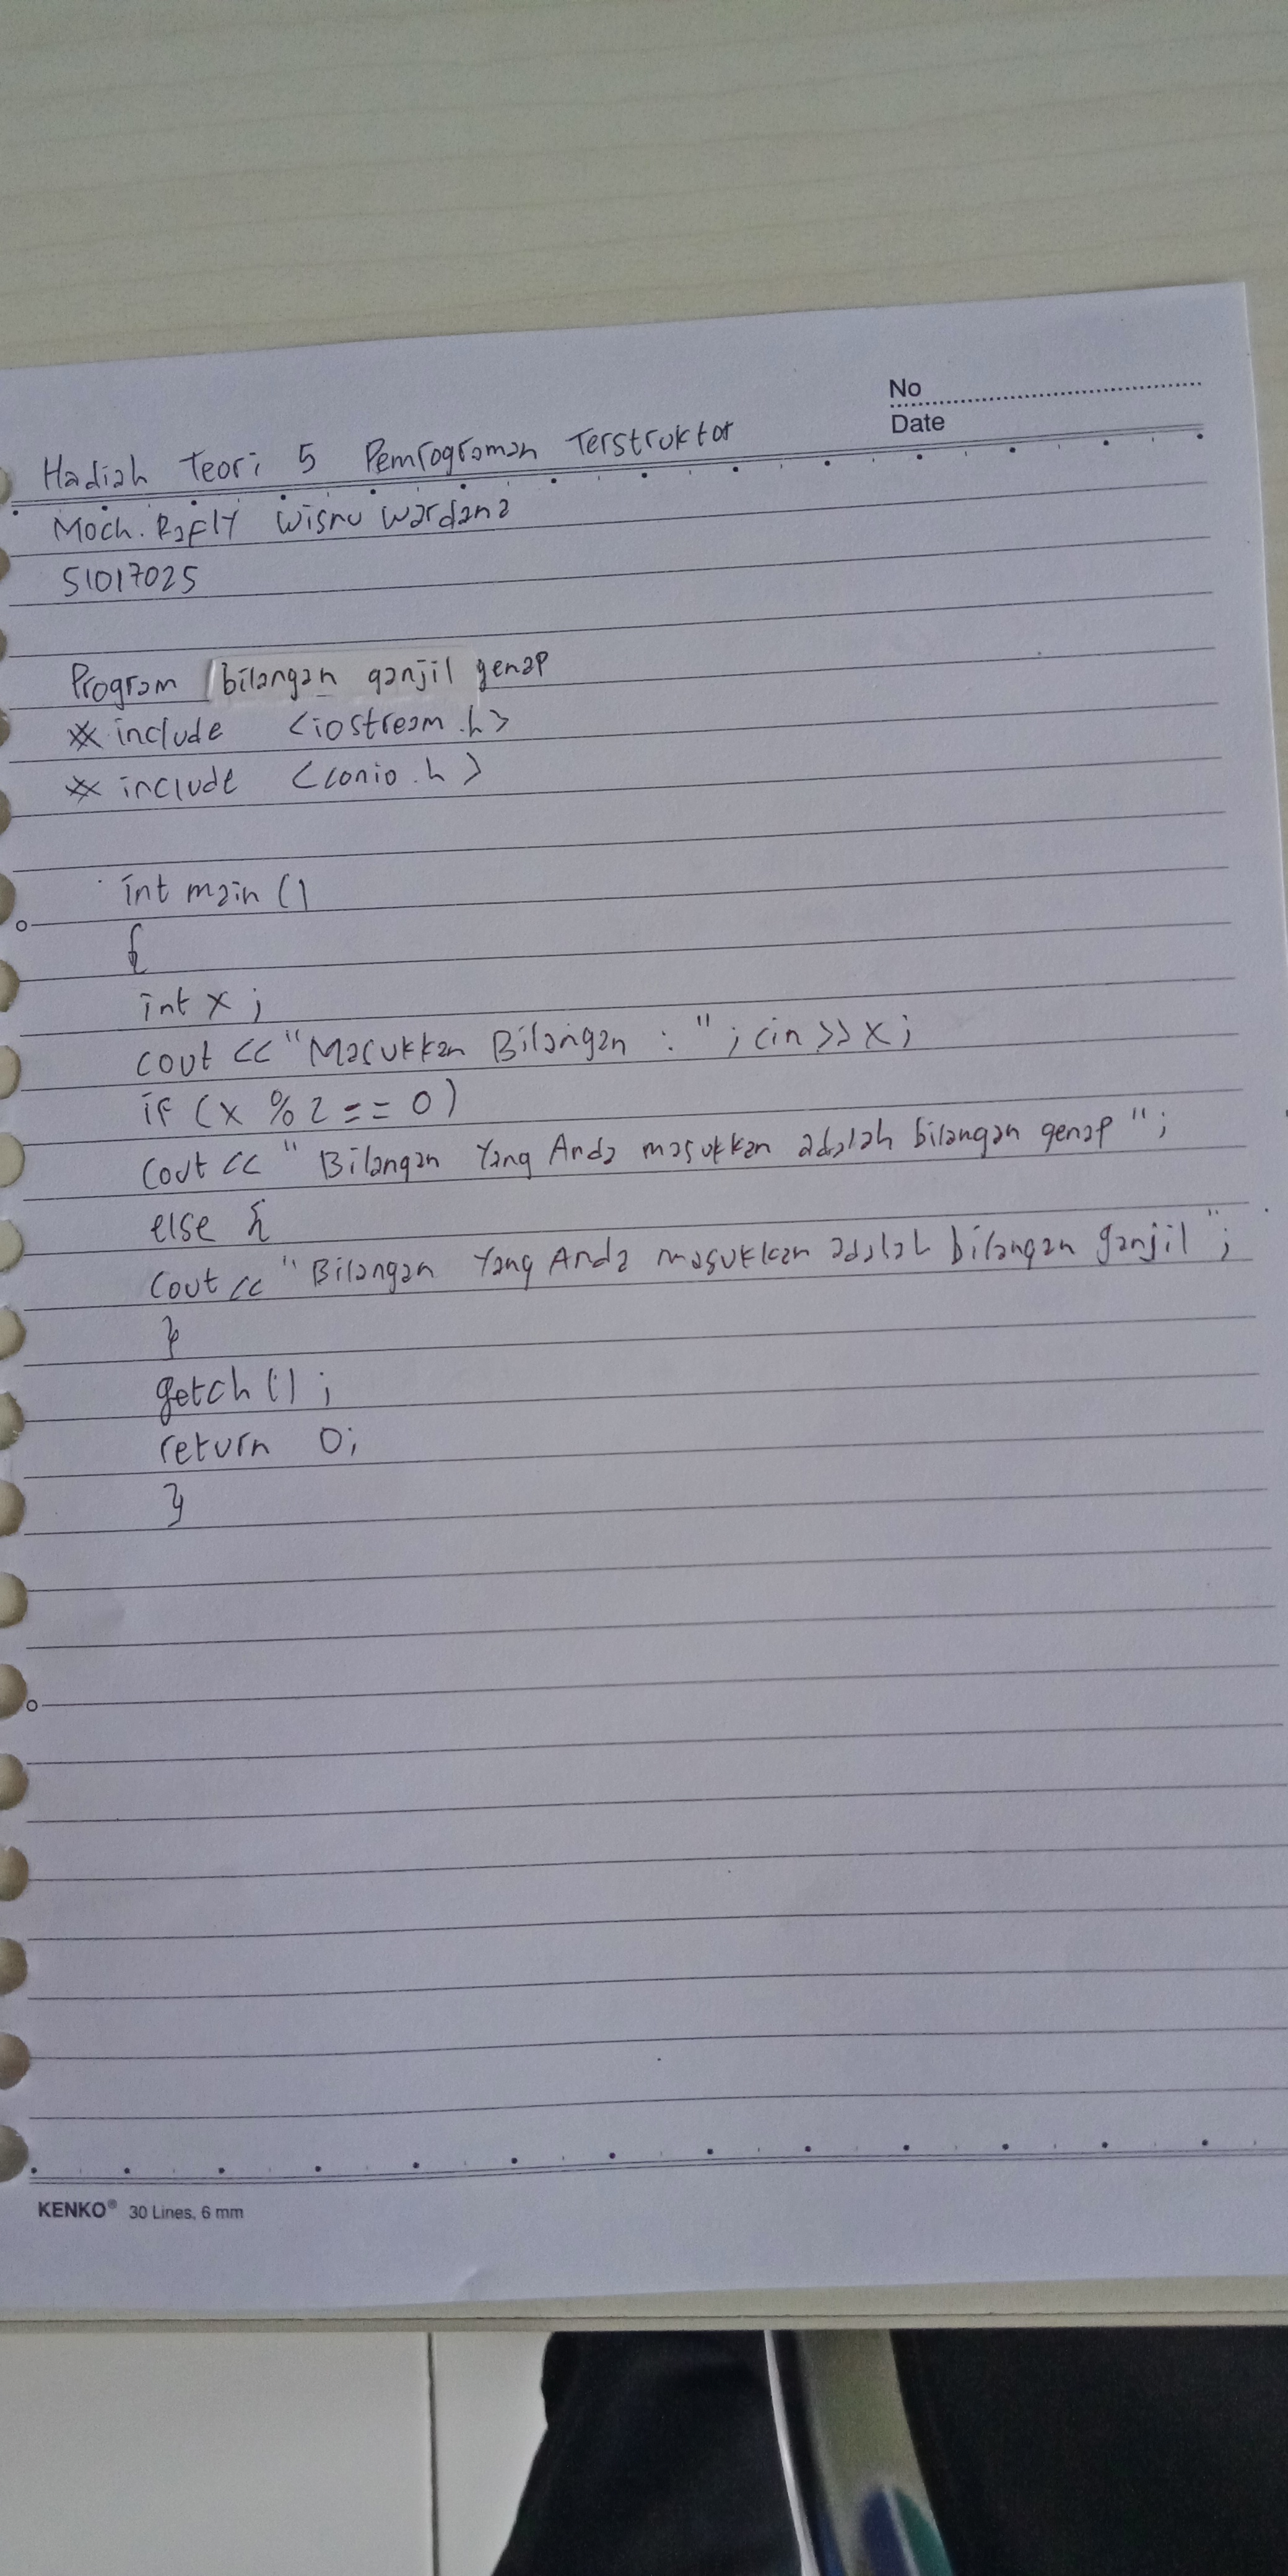 No
Date
Hadiah Teori 5 Pemrograman Terstruktor
Moch. Rafly Wisnu Wardana
51017025
Program bilangan ganjil genap
# include <iostream.h>
# include <conio.h>
int main ()
{
int x ;
cout << "Masukkan Bilangan : " ; cin >> x ;
if (x % 2 == 0)
cout << " Bilangan Yang Anda masukkan adalah bilangan genap " ;
else {
cout << " Bilangan Yang Anda masukkan adalah bilangan ganjil " ;
}
getch () ;
return 0;
}
KENKO® 30 Lines, 6 mm